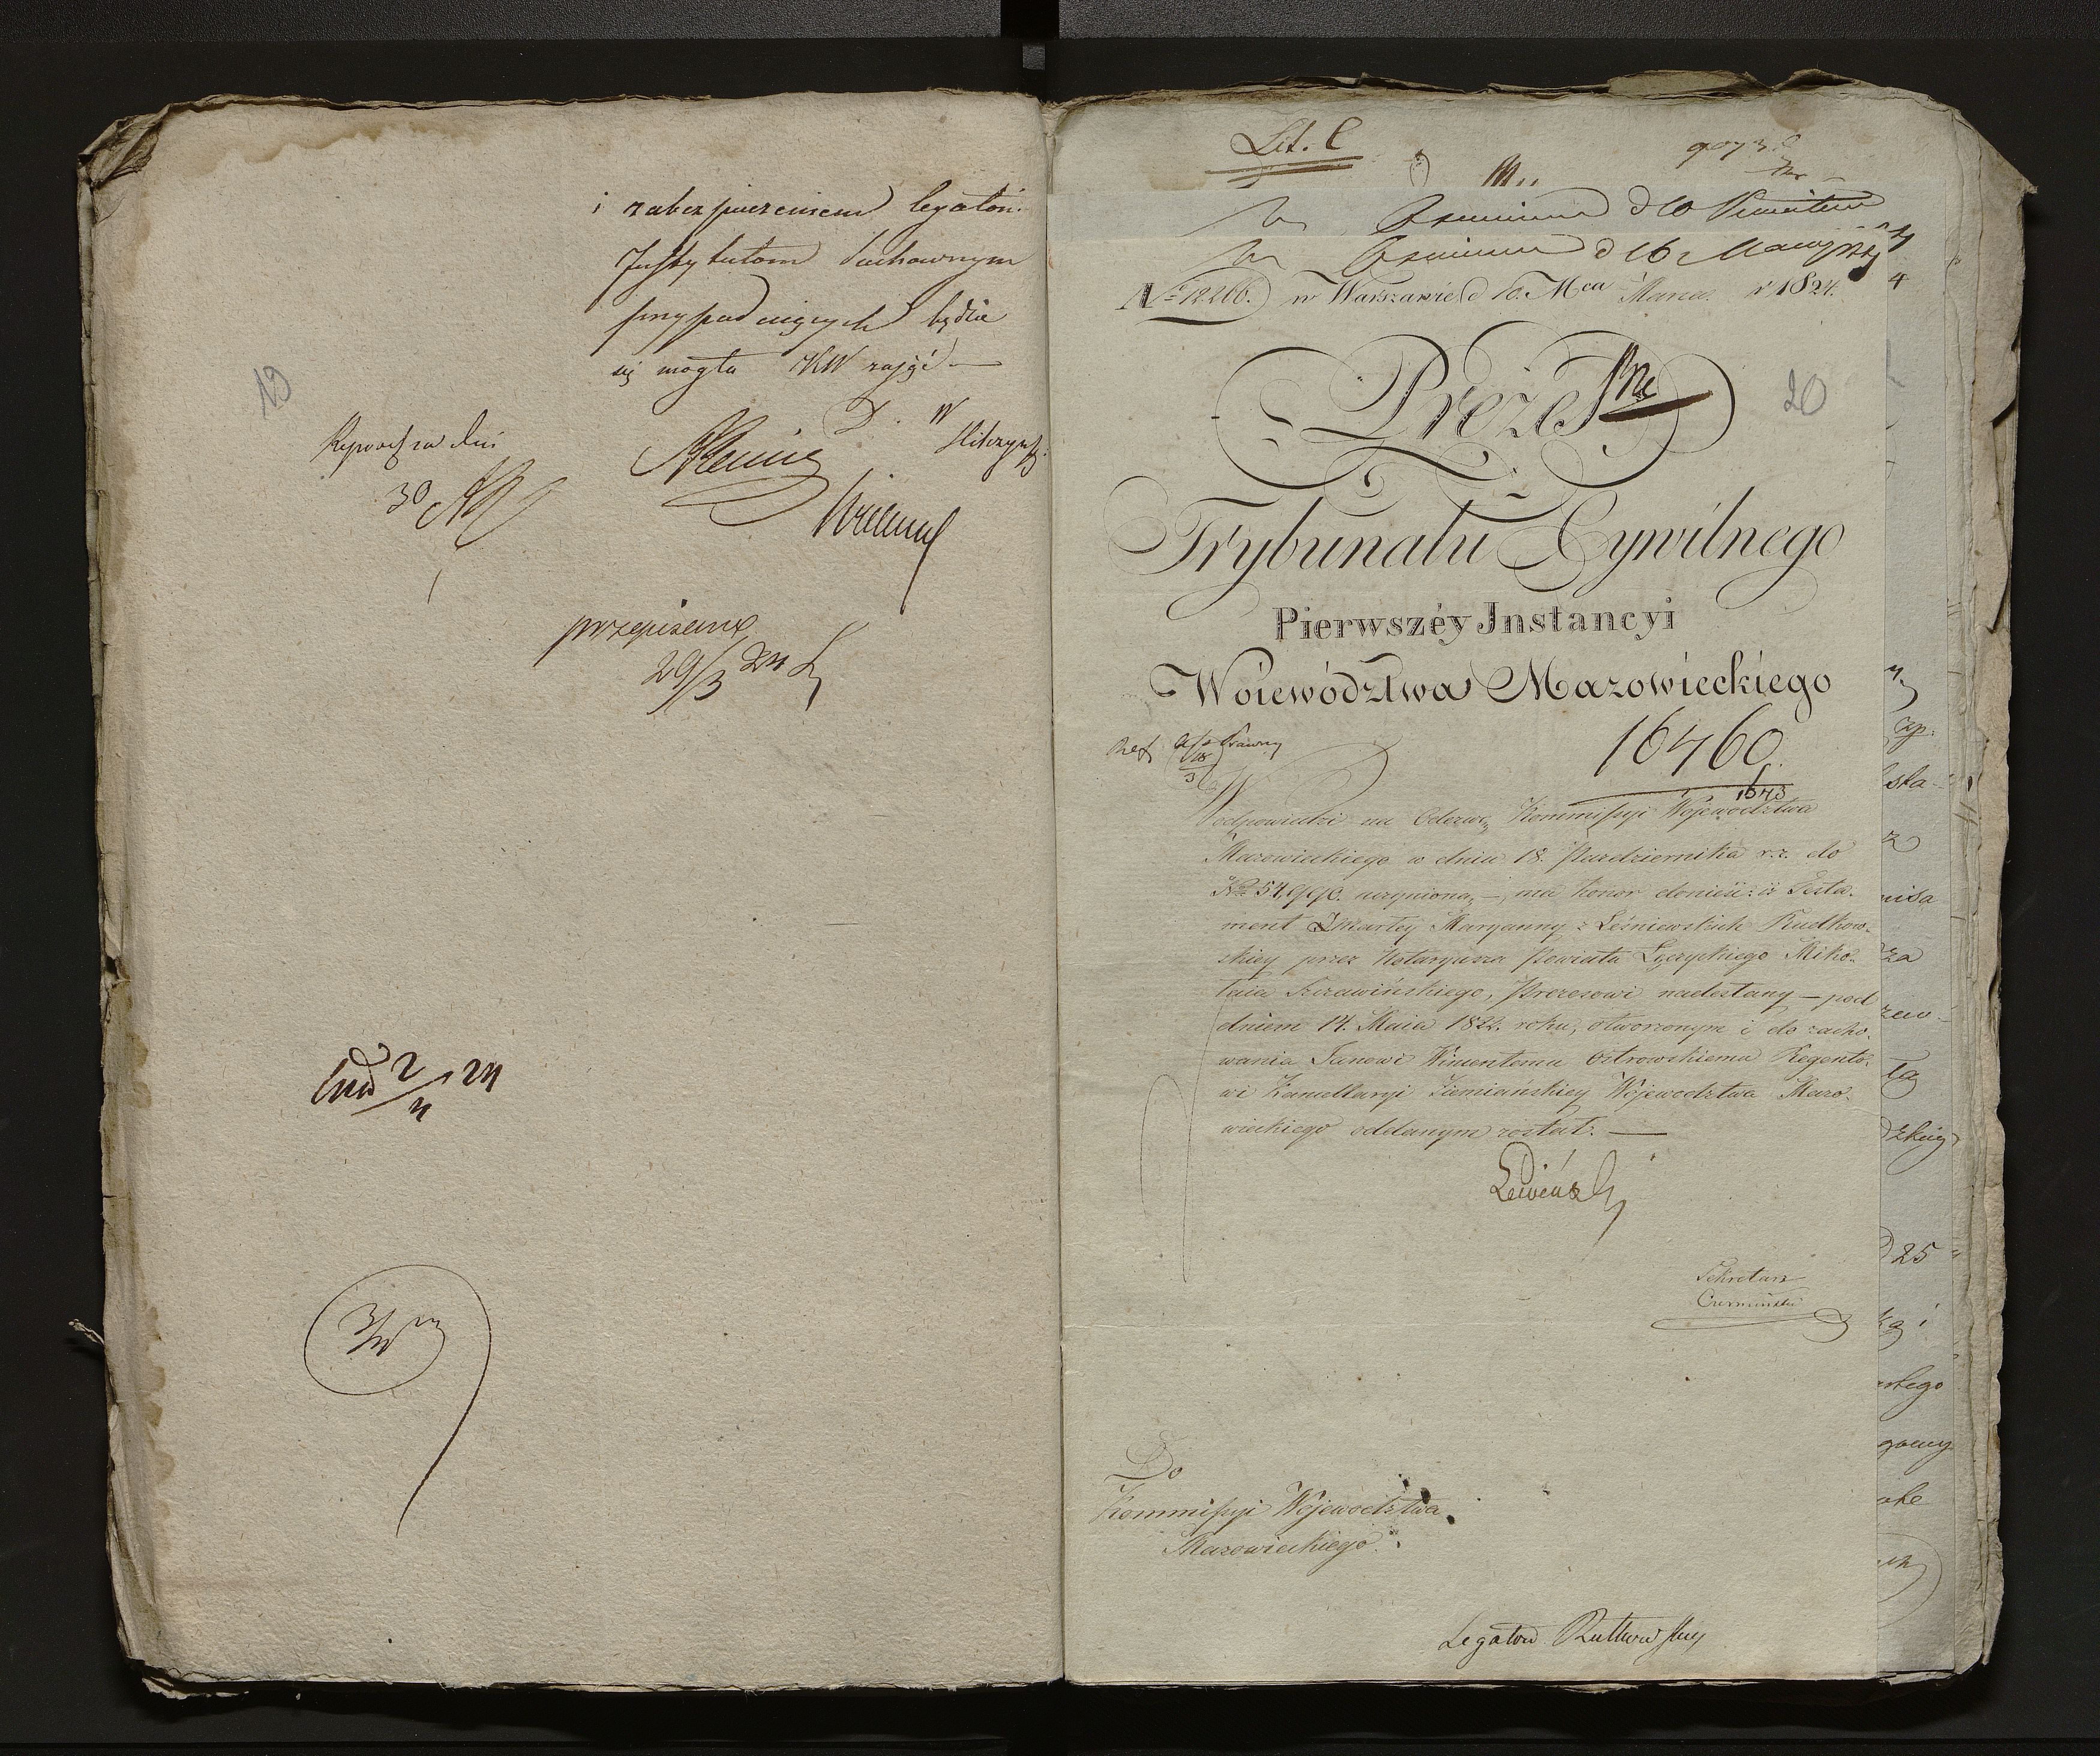 i zabezpieczeniem legatów
Instytutom duchownym
przypadaiących będzie
się mogła KW zająć —
19
Reprod za dni
30
przepisano
29/3 24
2/4 24
Lit. C
20
№ 12266. w Warszawie d 10. Mca Marca. r 1824.
Prezes
Trybunału Cywilnego
Pierwszéy Jnstancyi
Woiewództwa Mazowieckiego
16460.
1643
W odpowiedzi na Odezwę Kommissyi Wojewodztwa
Mazowieckiego w dniu 18. Pazdziernika r.z. do
№ 54,990. uczynioną, — ma honor donieść: iż Testa-
ment Zmarłey Maryanny z Leśniewskich Rudkow-
skiey przez Notaryusza Powiatu Łęczyckiego Miko-
łaia Szczawińskiego, Prezesowi nadesłany — pod
dniem 14. Maia 1822. roku, otworzonym i do zacho-
wania Janowi Wincentemu Ostrowskiemu Regento-
wi Kancellaryi Ziemiańskiey Wojewodztwa Mazo-
wieckiego oddanym został. —
Sekretarz
Do
Kommissyi Wojewodztwa
Mazowieckiego.
Legatów Rutkowskiey